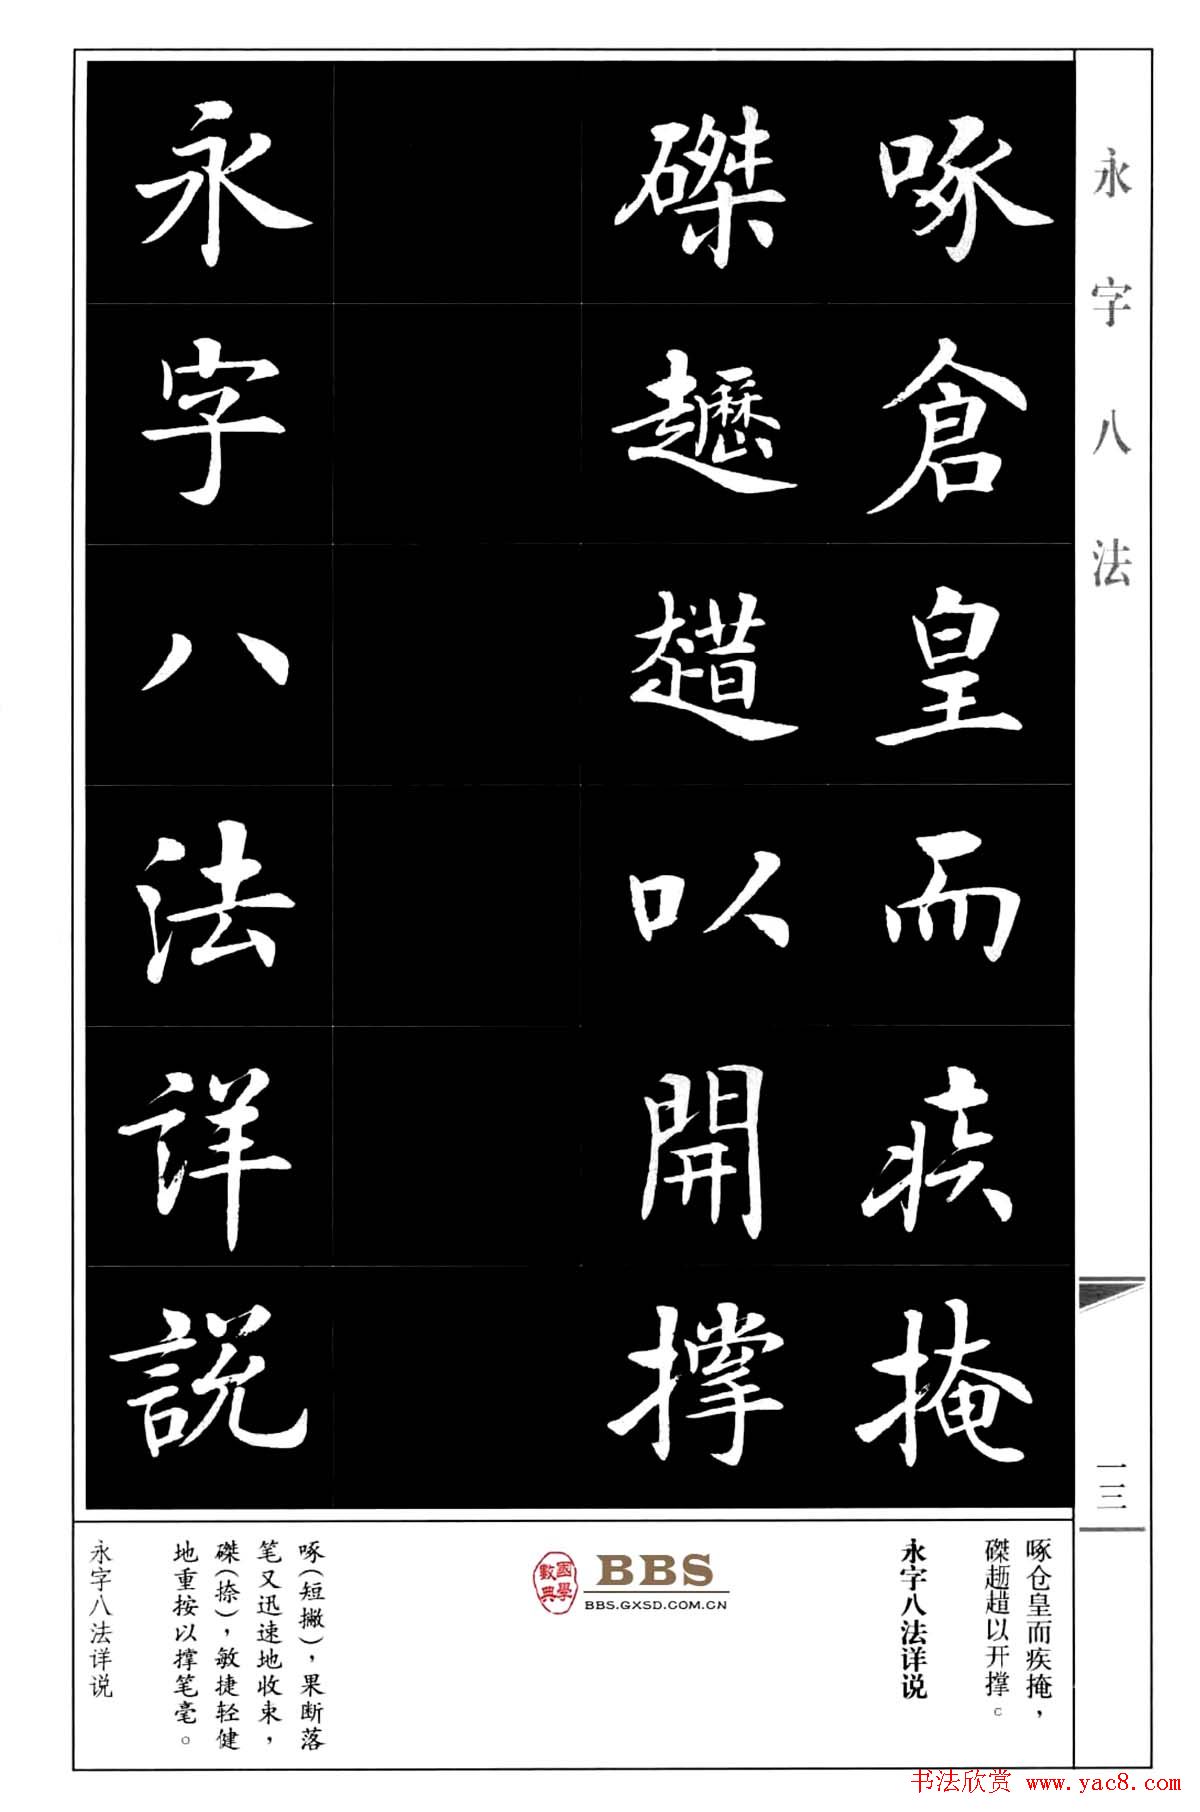 永字八法
啄倉皇而疾掩
磔趰趞以開撐
永字八法詳説
一三
啄仓皇而疾掩，
磔趰趞以开撑。
永字八法详说
國學數典
BBS
BBS.GXSD.COM.CN
啄(短撇)，果断落
笔又迅速地收束，
磔(捺)，敏捷轻健
地重按以撑笔毫。
永字八法详说
书法欣赏 www.yac8.com